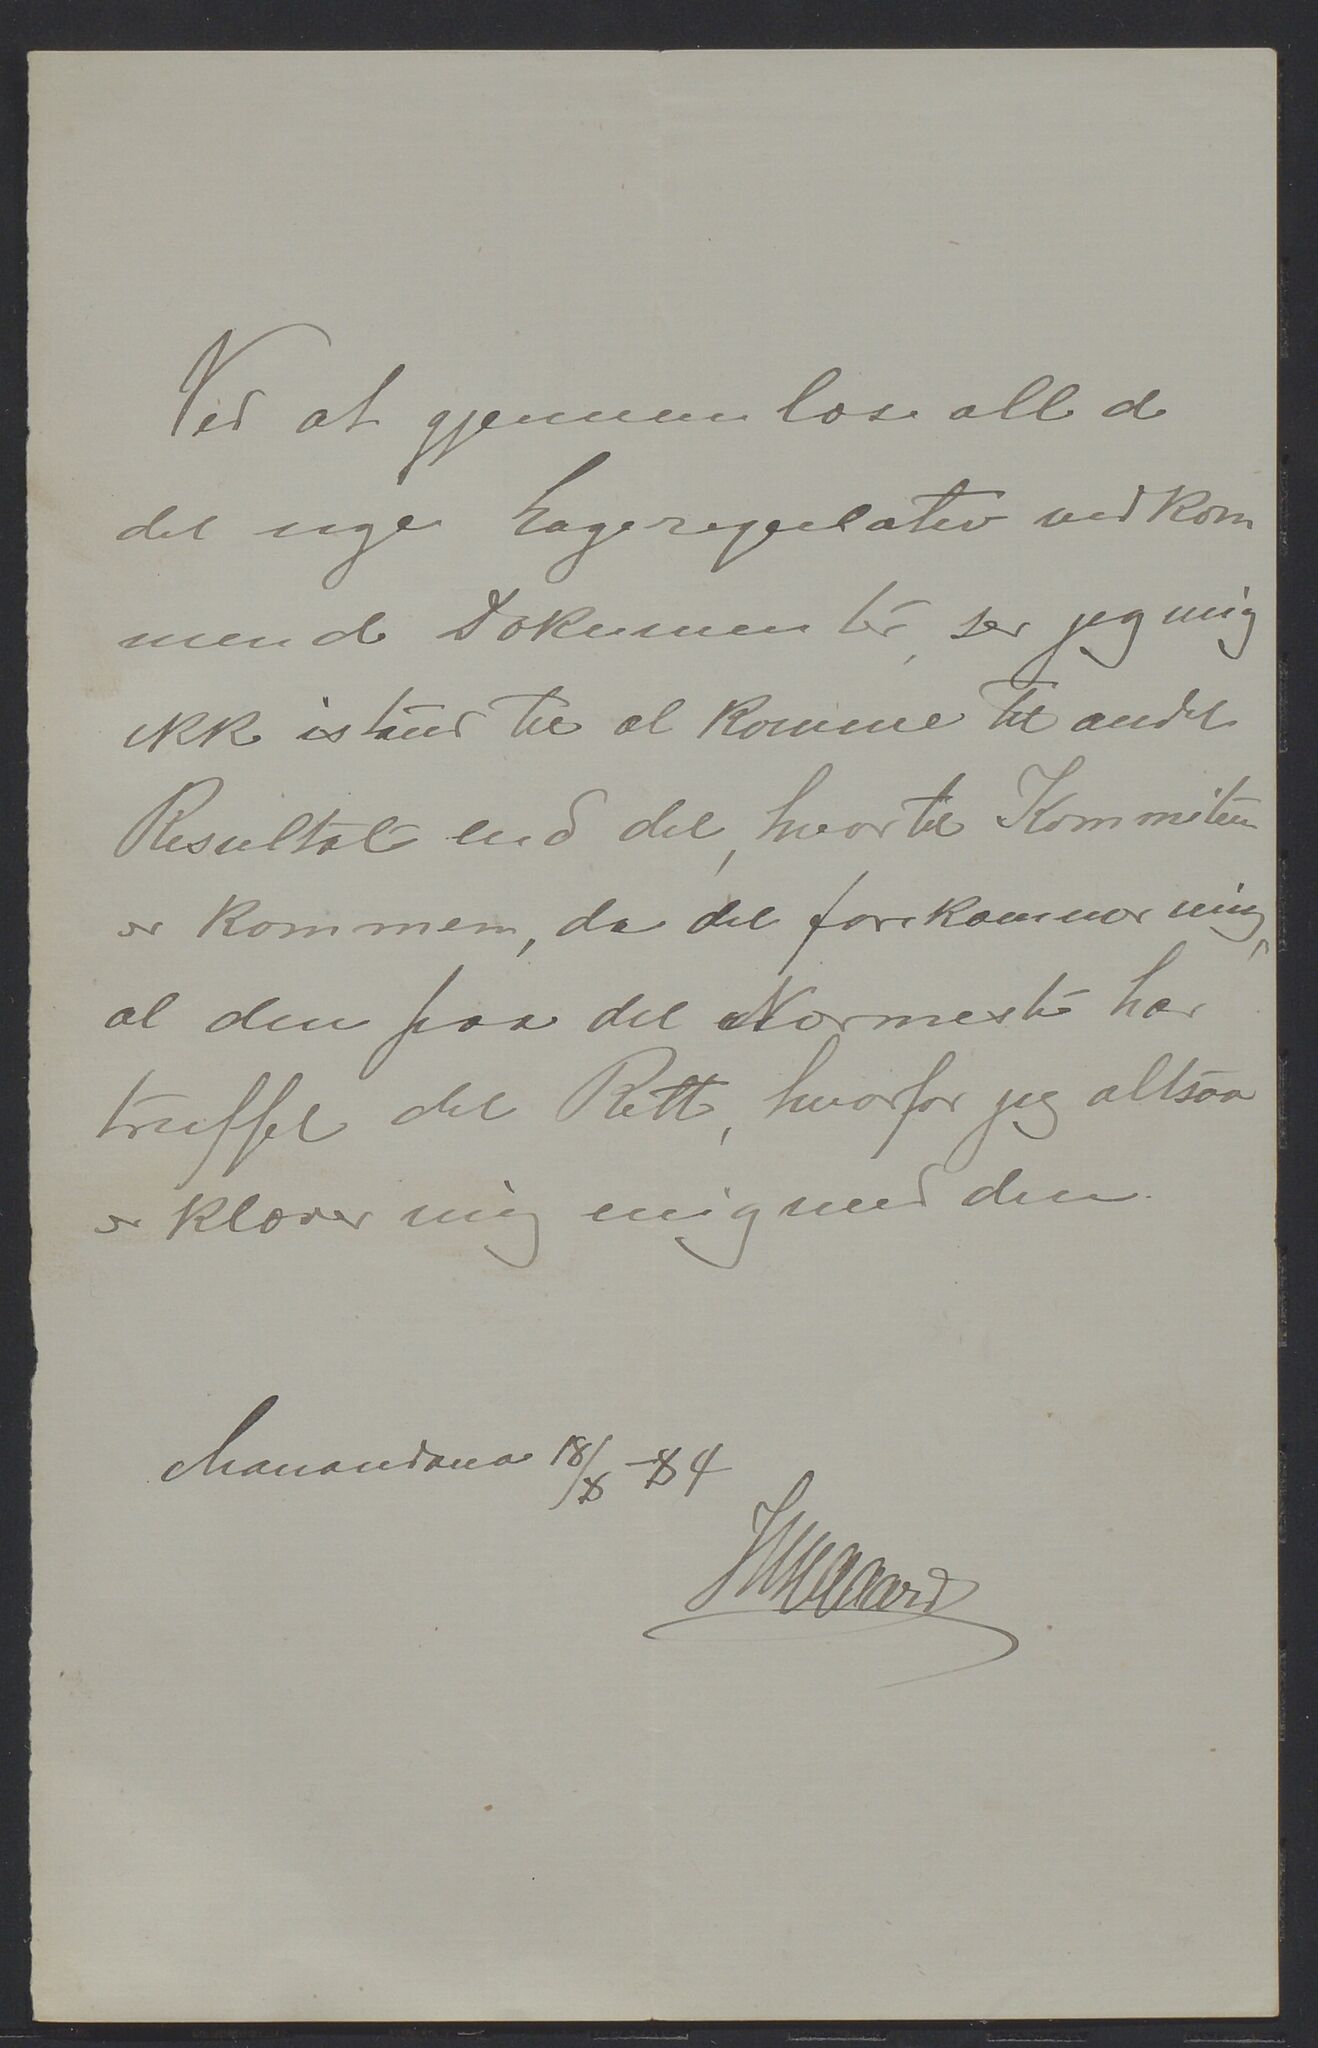 Ved at gjennemlæse alle de
det nye Lageregulativ vedkom
mende Dokumenter, ser jeg mig
ikke istand til at komme til andet
Resultat end det, hvortil Kommiteen
er kommen, da det forekommer mig,
at den paa det Nærmeste har
truffet det Rette, hvorfor jeg altsaa
erklærer mig enig med den.
Manandona 18/8 -84